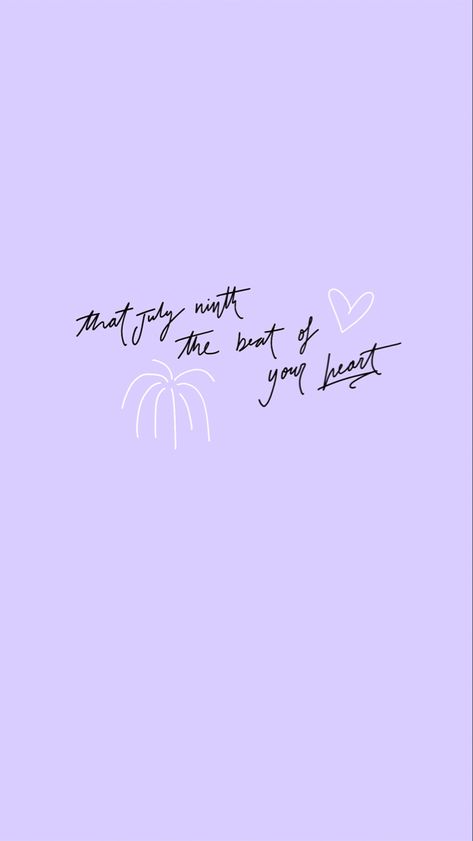 that July ninth
the beat of
your heart